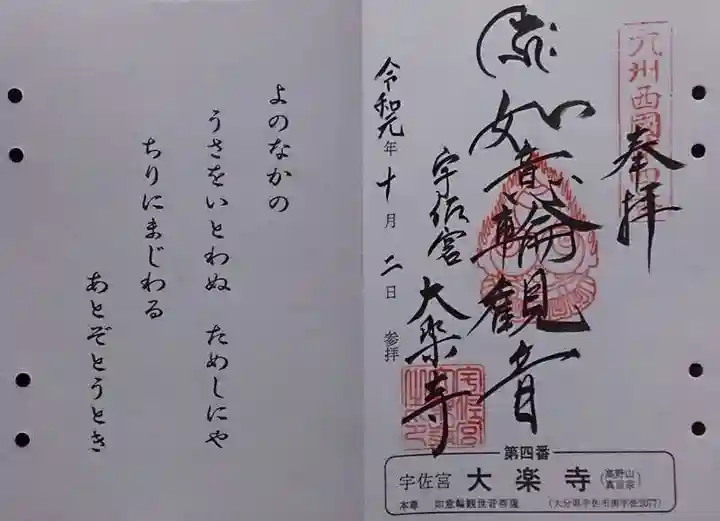 奉拝
如意輪観音
宇佐宮
大楽寺
令和元年十月二日 参拝
第四番
宇佐宮 大楽寺 (高野山 真言宗)
本尊 如意輪観世音菩薩 (大分県宇佐市南宇佐2077)
よのなかの
うさをいとわぬ ためしにや
ちりにまじわる
あとぞとうとき